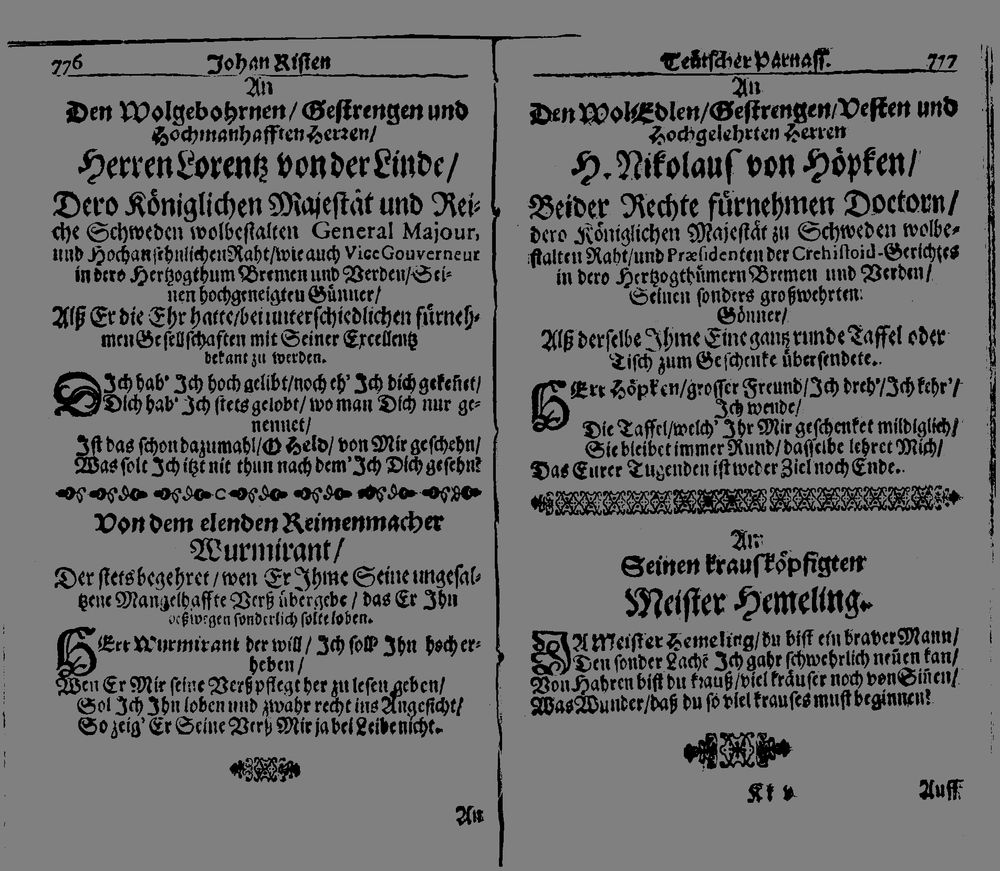 776 Johan Risten
An
Den Wolgebohrnen/ Gestrengen und
Hochmanhafften Herren/
Herren Lorentz von der Linde/
Dero Königlichen Majestät und Rei-
che Schweden wolbestalten General Majour,
und Hochansehnlichen Raht/ wie auch Vice Gouverneur
in dero Hertzogthum Bremen und Verden/ Sei-
nen hochgeneigten Günner/
Alß Er die Ehr hatte/ bei unterschiedlichen fürneh-
men Gesellschaften mit Seiner Excellentz
bekant zu werden.
DIch hab' Ich hoch gelibt/ noch eh' Ich dich gekeñet/
Dich hab' Ich stets gelobt/ wo man Dich nur ge-
nennet/
Ist das schon dazumahl/ O Held/ von Mir geschehn/
Was solt Ich itzt nit thun nach dem' Ich Dich gesehn?
Von dem elenden Reimenmacher
Wurmirant/
Der stets begehret/ wen Er Ihme Seine ungesal-
tzene Mangelhaffte Verß übergebe/ das Er Ihn
deßwegen sonderlich solte loben.
HErr Wurmirant der will/ Ich soll' Ihn hoch er-
heben/
Wen Er Mir seine Verß pflegt her zu lesen geben/
Sol Ich Ihn loben und zwahr recht ins Angesicht/
So zeig' Er Seine Verß Mir ja bei Leibe nicht.
An
Teütscher Parnass. 777
An
Den WolEdlen/ Gestrengen/ Vesten und
Hochgelehrten Herren
H. Nikolaus von Höpken/
Beider Rechte fürnehmen Doctorn/
dero Königlichen Majestät zu Schweden wolbe-
stalten Raht/ und Præsidenten der Crehistoid-Gerichtes
in dero Hertzogthümern Bremen und Verden/
Seinen sonders großwehrten
Gönner/
Alß derselbe Ihme Eine gantz runde Taffel oder
Tisch zum Geschenke übersendete.
HErr Höpken/ grosser Freund/ Ich dreh'/ Ich kehr'/
Ich wende/
Die Taffel/ welch' Ihr Mir geschenket mildiglich/
Sie bleibet immer Rund/ dasselbe lehret Mich/
Das Eurer Tugenden ist weder Ziel noch Ende.
An
Seinen krausköpfigten
Meister Hemeling.
JA Meister Hemeling/ du bist ein braver Mann/
Den sonder Lache Ich gahr schwehrlich neñen kan/
Von Hahren bist du krauß/ viel kräuser noch von Siñen/
Was Wunder/ daß du so viel krauses must beginnen?
Kk v Auff